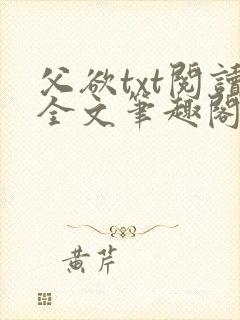 父欲txt閱讀
全文筆趣閣
黃芹